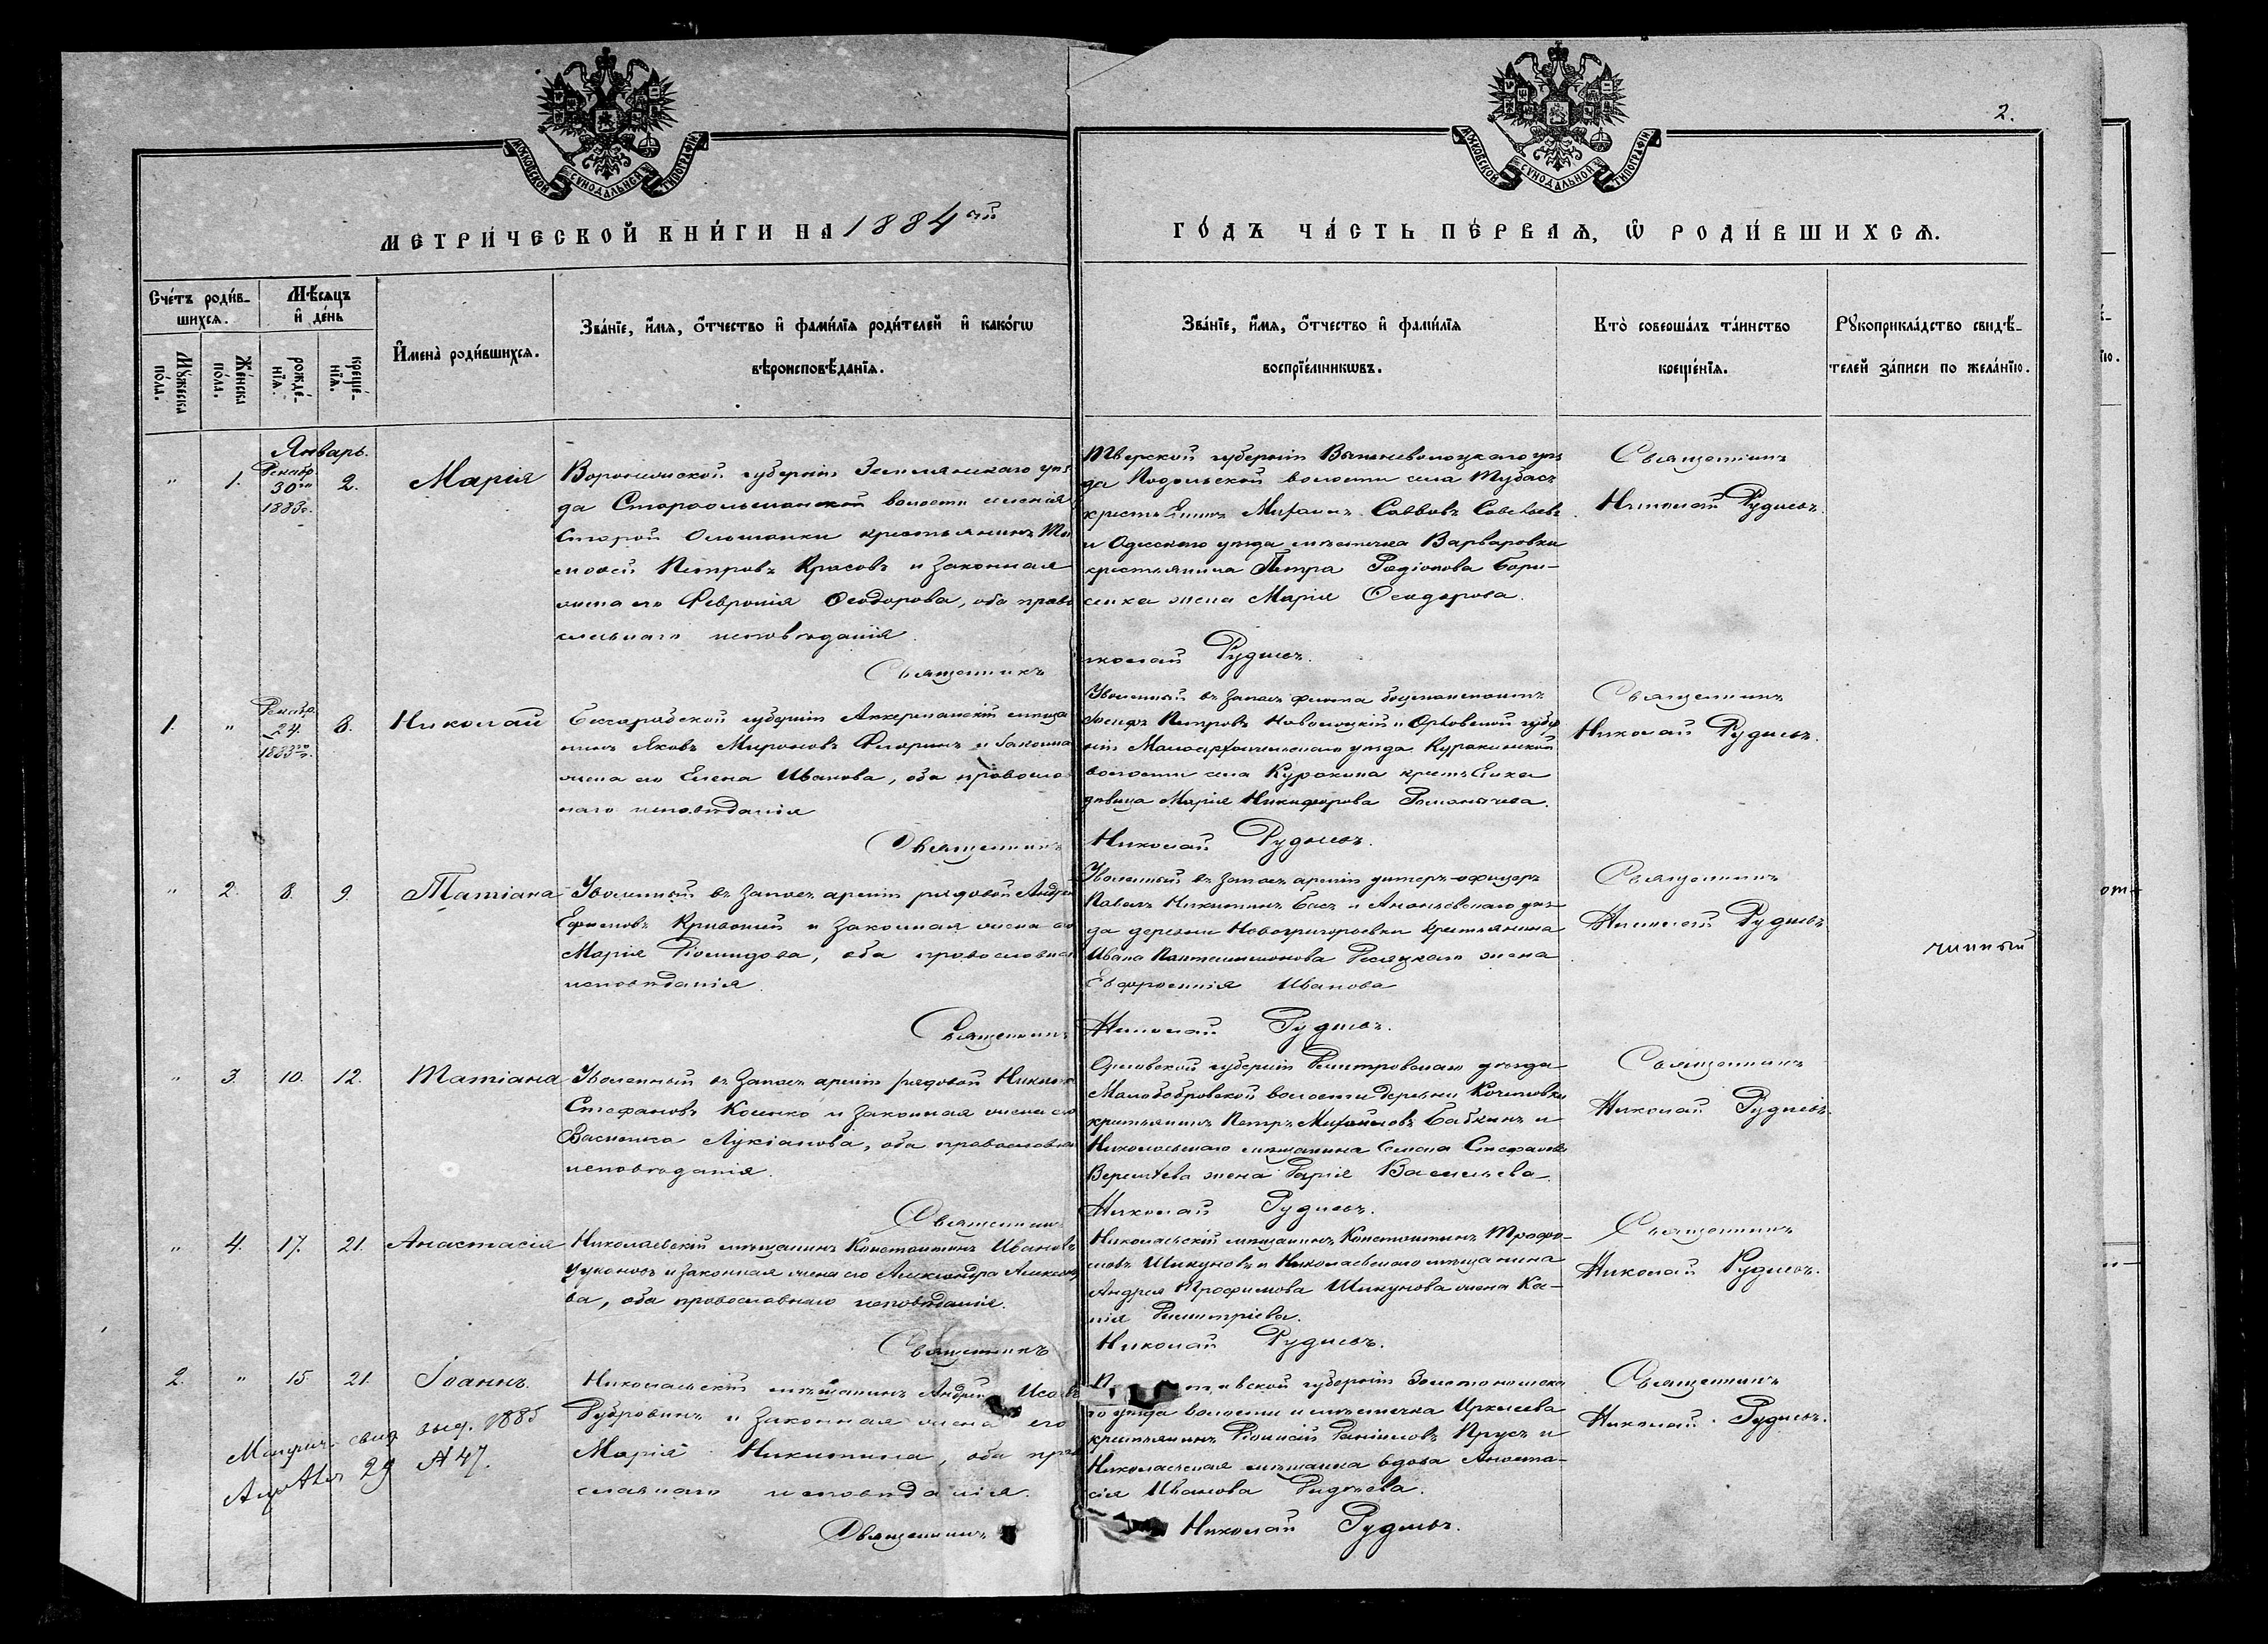 2.
МОСКОВСКОЙ СѴНОДАЛЬНОЙ ТИПОГРАФІИ
МОСКОВСКОЙ СѴНОДАЛЬНОЙ ТИПОГРАФІИ
МЕТРИ́ЧЕСКОЙ КНИ́ГИ НА 1884 ый
ГО́ДЪ ЧА́СТЬ ПЕ́РВАѦ, Ѡ РОДИ́ВШИХСѦ.
Сче́тъ роди́в-
шихсѧ.
Мꙋжеска по́ла.
Же́нска по́ла.
Мѣ́сѧцъ
и҆ де́нь
рожде́-
нїѧ.
креще́-
нїѧ.
И҆мена̀ роди́вшихсѧ.
Зва́нїе, и҆́мѧ, ѻ҆́тчество и҆ фами́лїѧ роди́телей и҆ како́гѡ
вѣроисповѣ́данїѧ.
Зва́нїе, и҆́мѧ, ѻ҆́тчество и҆ фами́лїѧ
воспрїе́мникѡвъ.
Кто̀ соверша́лъ та́инство
креще́нїѧ.
Рꙋкоприкла́дство свидѣ́-
телей за́писи по жела́нїю.
Январь.
" 1. Декабр. 30 1883 г. 2. Марія
Воронежской губерніи Землянскаго уѣз
да Староольшанской волости селенія
Старой Ольшанки крестьянинъ Ти
моѳей Петровъ Красовъ и законная
жена его Февронія Ѳеодорова, оба право
славнаго исповѣданія.
Священникъ
Тверской губерніи Вышневолоцкаго уѣз
да Подольской волости села
крестьянинъ Михаилъ Саввовъ Савельевъ
и Одесскаго уѣзда мѣстечка Варваровки
крестьянина Петра Родіонова Бори-
сенка жена Марія Ѳеодорова.
николай Рудневъ.
Священникъ
Николай Рудневъ.
1. " Декабр. 24. 1883 г. 8. Николай
Бессарабской губерніи Аккерманскій мѣща
нинъ Яковъ Мироновъ Флоринъ и законна
жена его Елена Иванова, оба правосла
наго исповѣданія
Священникъ
Уволенный въ запасъ флота боцманматъ
Іосифъ Петровъ и Орловской губер
ніи Малоархангельскаго уѣзда Куракинской
волости села Куракина крестьянка
дѣвица Марія Никифорова Романычева.
Николай Рудневъ.
Священникъ
Николай Рудневъ.
" 2. 8. 9. Татіана
Уволенный въ запасъ арміи рядовой Андрей
Ефимовъ Кривошій и законная жена его
Марія Діомидова, оба православна
исповѣданія.
Священникъ
Уволенный въ запасъ арміи унтеръ-офицеръ
Павелъ Никитинъ Басъ и Ананьевскаго уѣз-
да деревни Новогригорьевки крестьянина
Ивана Пантелеимонова жена
Евфросинія Иванова
Николай Рудневъ.
Священникъ
Николай Рудневъ
чинный
" 3. 10. 12. Татіана
Уволенный въ запасъ арміи рядовой
Стефановъ Косенко и законная жена его
Василиса Лукіанова, оба православна
исповѣданія.
Священникъ
Орловской губерніи Дмитровскаго уѣзда
Малобобровской волости деревни
крестьянинъ Петръ Михайловъ Бабкинъ и
Николаевскаго мѣщанина Семена Стефанова
жена Дарія Васильева.
Николай Рудневъ.
Священникъ
Николай Рудневъ.
" 4. 17. 21. Анастасія
Николаевскій мѣщанинъ Константинъ Ивановъ
и законная жена его Александра Алексѣе
ва, оба православнаго исповѣданія.
Священникъ
Николаевскій мѣщанинъ Константинъ Трофи-
мовъ Шикуновъ и Николаевскаго мѣщанина
Андрея Трофимова Шикунова жена Ксе-
нія Димитріева.
Николай Рудневъ.
Священникъ
Николай Рудневъ.
2. " 15 21. Іоаннъ.
Николаевскій мѣщанинъ Андрей
Дубровинъ и законная жена его
Марія Никитина, оба пра
славнаго исповѣданія.
Священникъ
тавской губерніи Золотоношска
го уѣзда волости и мѣстечка Ирклеева
крестьянинъ Діонисій Даніиловъ Прусъ и
Николаевская мѣщанка вдова Анаста-
сія Иванова
Николай Рудневъ.
Священникъ
Николай Рудневъ.
Метрич. свид. выд. 1885
29 № 47.